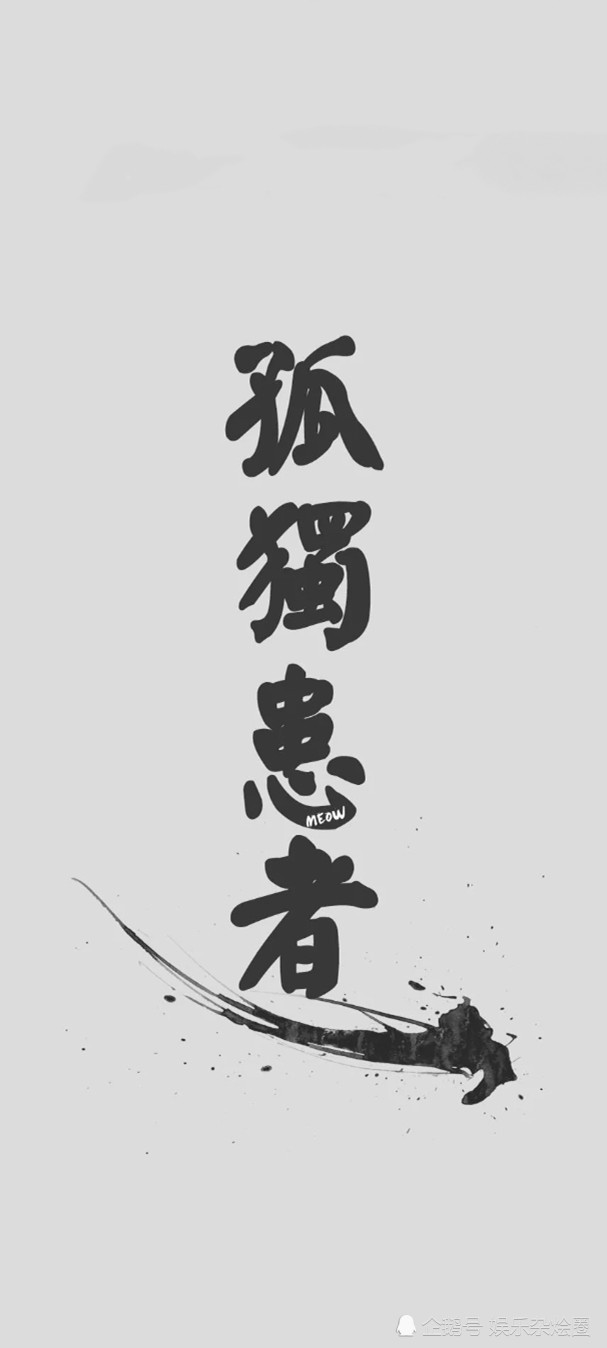 孤獨患者
MEOW
企鹅号 娱乐杂烩圈